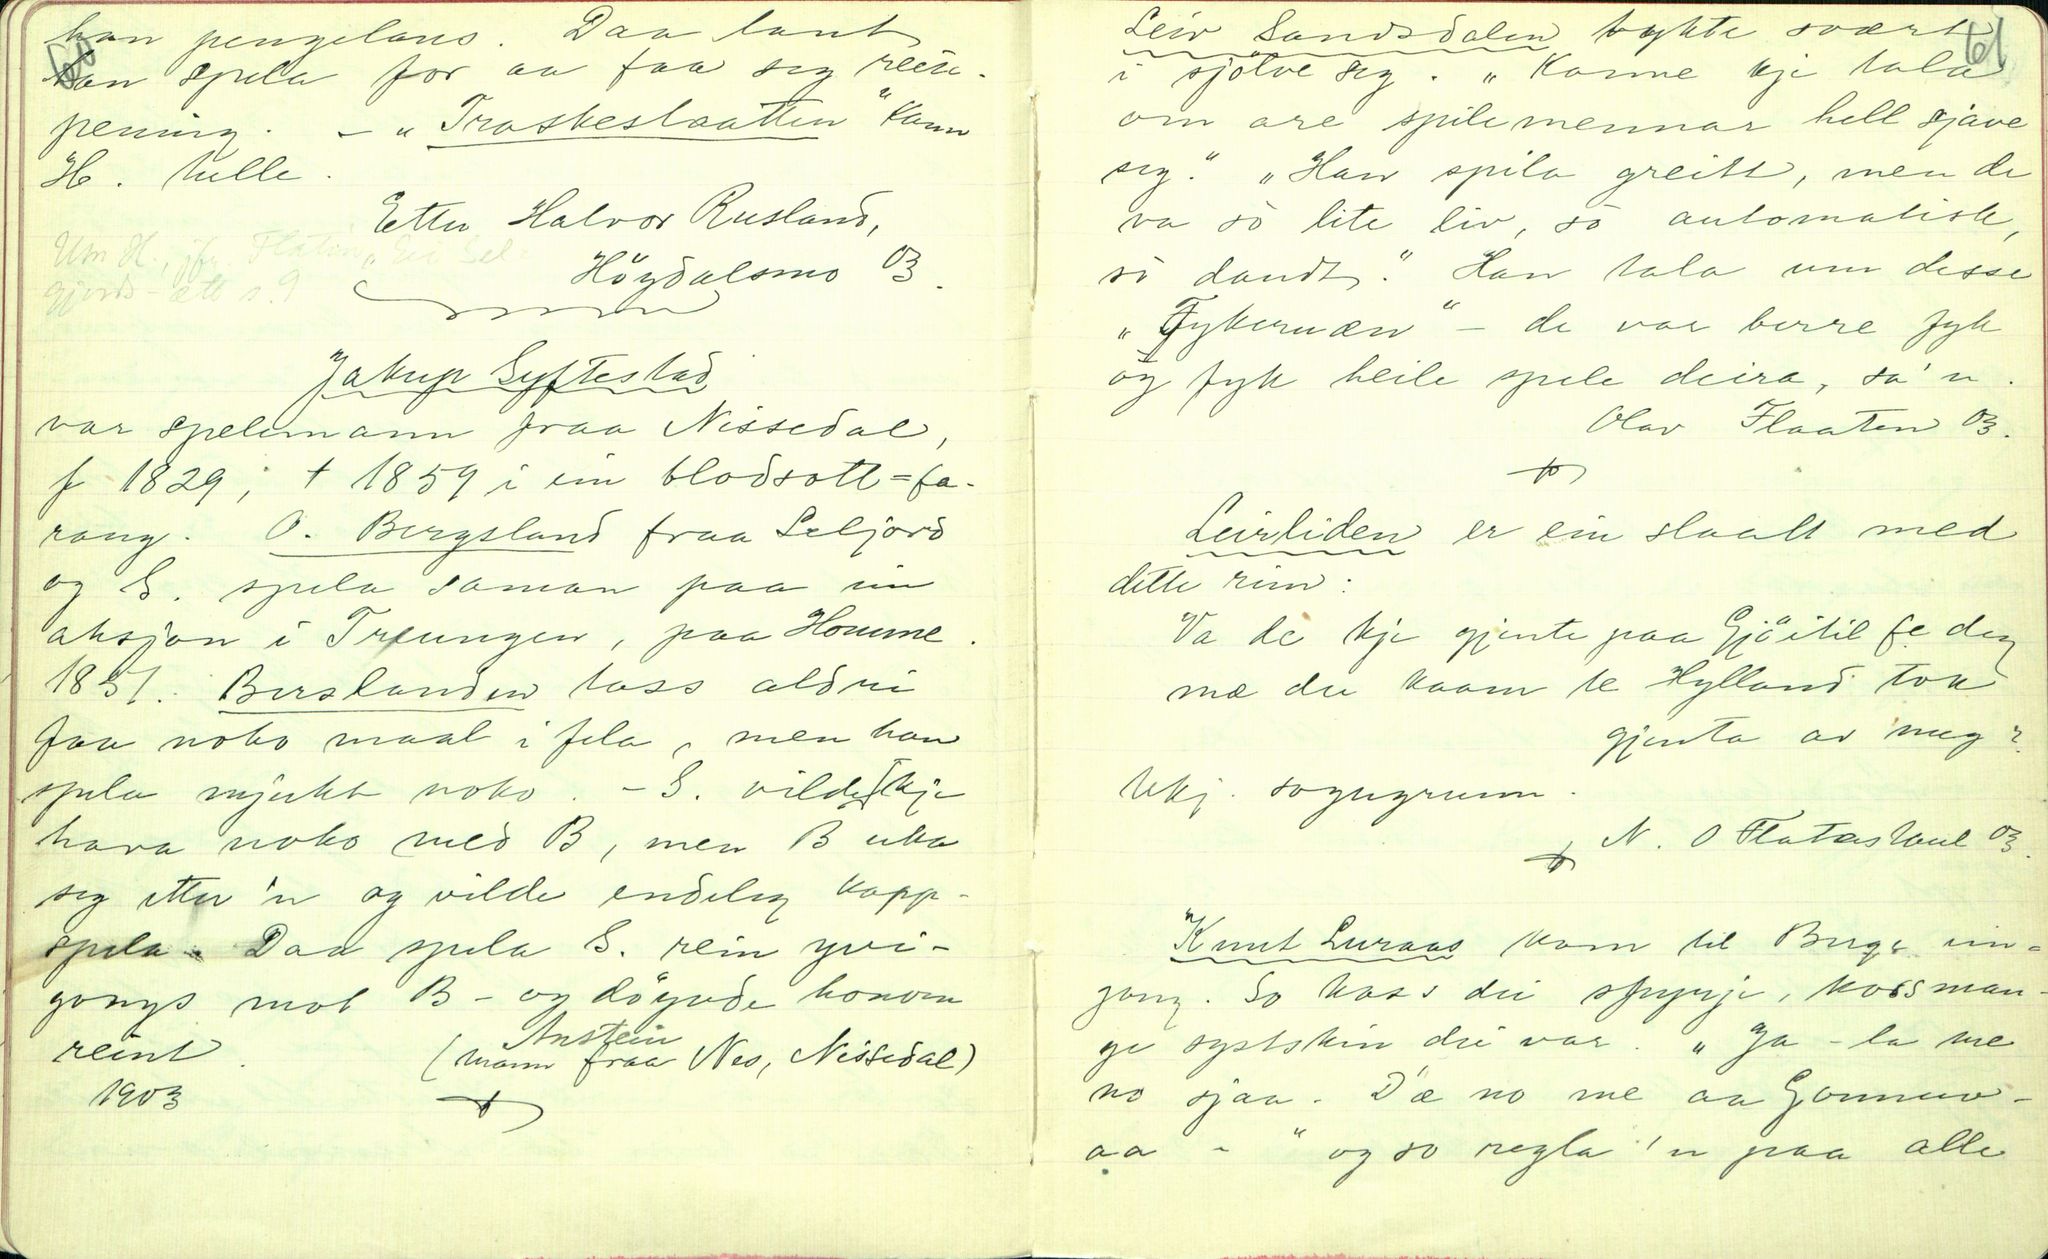 60
han pengelaus. Daa laut
han spela for aa faa seg reise-
pening. – „Traskeslaatten" kann
H. tulle.
Etter Halvor Rusland,
Höydalsmo 03.
Um H., jfr. Flatin, „Ei Sel-
gjords-ætt s. 9
Jakup Syftestad
var spelemann fraa Nissedal,
f 1829, † 1859 i ein blodsott=fa-
rang. O. Bergsland fraa Seljord
og S. spela saman paa ein
aksjon i Treungen, paa Homme.
1851. Berslanden lass aldri
faa noko maal i fela, men han
spela mjukt noko. – S. vilde kje
hava noko med B, men B eka
seg etter 'n og vilde endeleg kapp-
spela. Daa spela S. rein yvi-
gongs mot B – og döyvde honom
reint.
(Anstein
mann fraa Nes, Nissedal)
1903
61
Leiv Sandsdalen tykte svært
i sjölve seg. „Kanne kje tala
om are spilemennar hell sjave
seg." „Han spila greitt, men de
va so lite liv, so automatisk,
so daudt." Han tala um desse
„Fykeruæn" – de var berre fyk
og fyk heile spele deira, sa'n.
Olav Flaaten 03.
Leirliden er ein slaatt med
dette rim:
Va de kje gjente paa Gjöitil fe deg
mæ du kaam te Hylland tok
gjenta av meg?
Ukj. sogugrunn.
N. O Flatastaul 03.
Knut Luraas kom til Berge ein-
gong. So kass dei spyrje, koss man-
ge systskin dei var. „Ja – la me
no sjaa. D'æ no me aa Gonnuv –
aa – " og so regla 'n paa alle